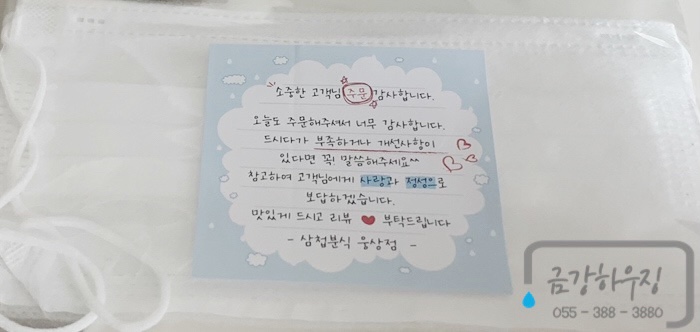 소중한 고객님 주문 감사합니다.
오늘도 주문해주셔서 너무 감사합니다.
드시다가 부족하거나 개선사항이
있다면 꼭! 말씀해주세요^^
참고하여 고객님에게 사랑과 정성으로
보답하겠습니다.
맛있게 드시고 리뷰 ♥ 부탁드립니다
- 삼첩분식 웅상점 -
금강하우징
055 - 388 - 3880